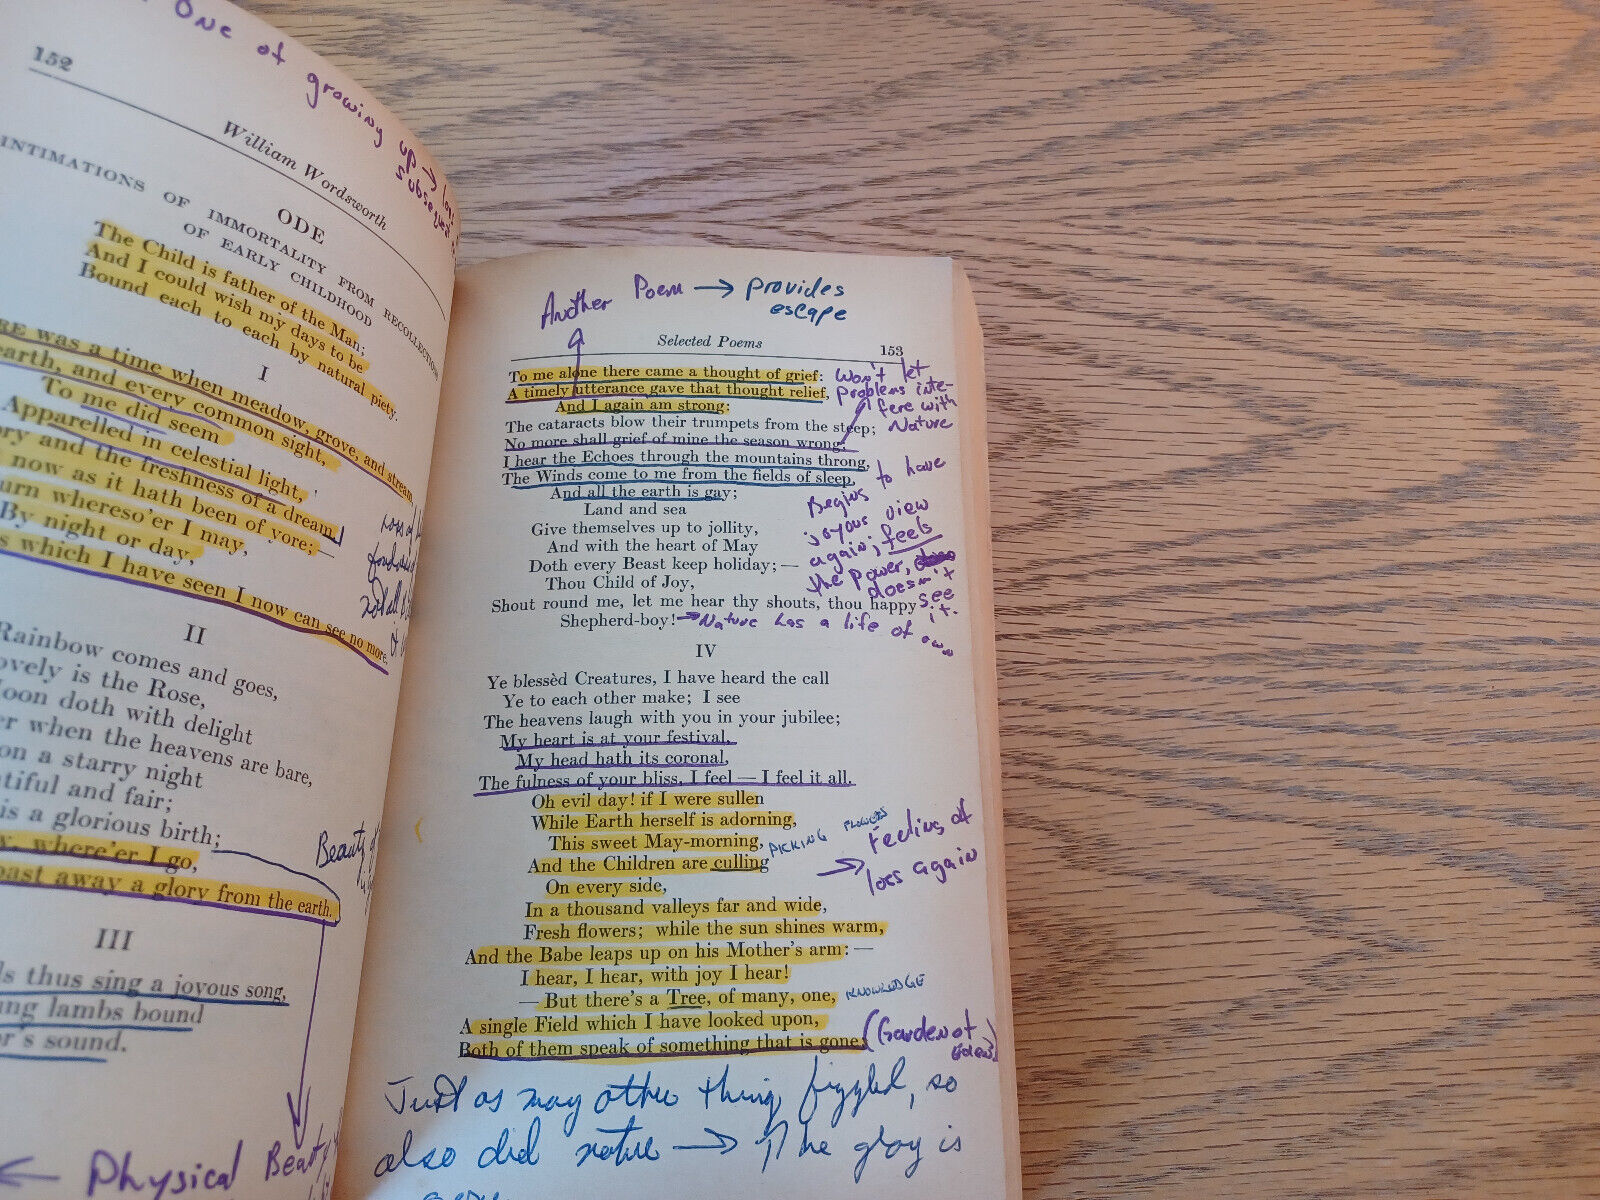 One of
growing
up →
152
William Wordsworth
ODE
INTIMATIONS OF IMMORTALITY FROM RECOLLECTIONS
OF EARLY CHILDHOOD
The Child is father of the Man;
And I could wish my days to be
Bound each to each by natural piety.
I
was a time when meadow, grove, and stream,
earth, and every common sight,
To me did seem
Apparelled in celestial light,
and the freshness of a dream.
now as it hath been of yore;—
whereso'er I may,
By night or day,
which I have seen I now can see no more.
II
Rainbow comes and goes,
is the Rose,
doth with delight
when the heavens are bare,
on a starry night
and fair;
is a glorious birth;
where'er I go,
past away a glory from the earth.
Beauty
III
thus sing a joyous song,
lambs bound
sound.
← Physical Beauty
Another Poem → provides
escape
Selected Poems
153
To me alone there came a thought of grief:
A timely utterance gave that thought relief,
And I again am strong:
The cataracts blow their trumpets from the steep;
No more shall grief of mine the season wrong;
I hear the Echoes through the mountains throng,
The Winds come to me from the fields of sleep,
And all the earth is gay;
Land and sea
Give themselves up to jollity,
And with the heart of May
Doth every Beast keep holiday;—
Thou Child of Joy,
Shout round me, let me hear thy shouts, thou happy
Shepherd-boy!
Won't let
Problems inte-
fere with
Nature
Begins to have
joyous view
again; feels
the power,
doesn't
see
it.
→ Nature has a life of own
IV
Ye blessèd Creatures, I have heard the call
Ye to each other make; I see
The heavens laugh with you in your jubilee;
My heart is at your festival,
My head hath its coronal,
The fulness of your bliss, I feel — I feel it all.
Oh evil day! if I were sullen
While Earth herself is adorning,
This sweet May-morning,
And the Children are culling
PICKING FLOWERS
→ Feeling of
loss again
On every side,
In a thousand valleys far and wide,
Fresh flowers; while the sun shines warm,
And the Babe leaps up on his Mother's arm:—
I hear, I hear, with joy I hear!
—But there's a Tree, of many, one,
KNOWLEDGE
A single Field which I have looked upon,
Both of them speak of something that is gone:
(Garden of
Eden)
Just as may other thing fizzled, so
also did nature → The glory is